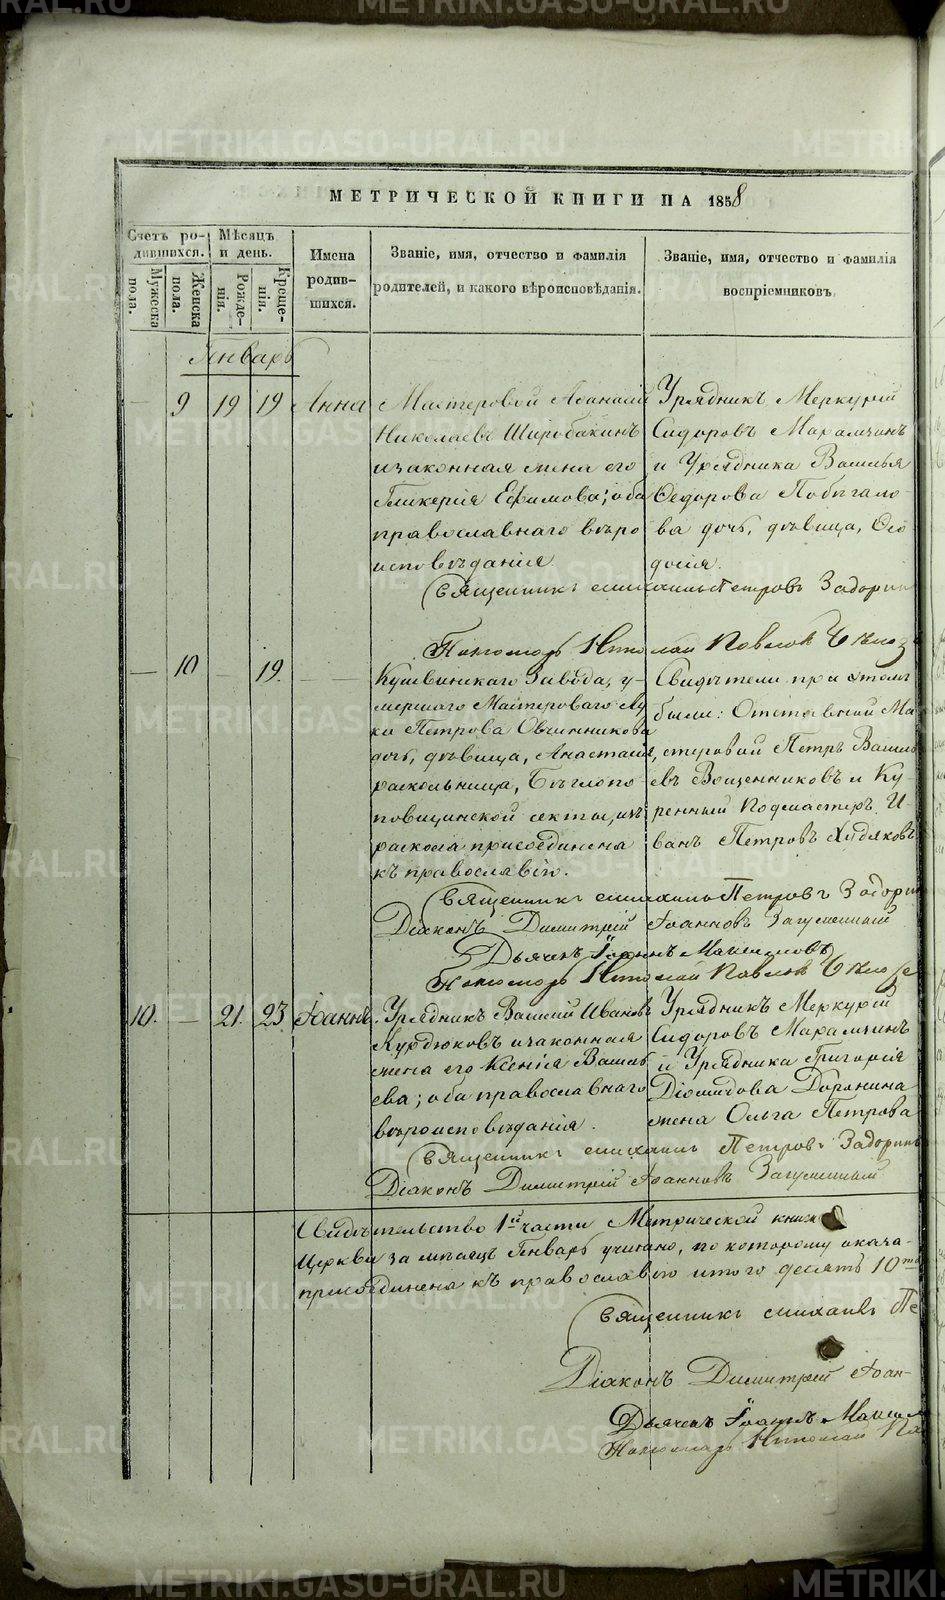 МЕТРИЧЕСКОЙ КНИГИ НА 1858
Счетъ ро-
дившихся.
Мужеска
пола.
Женска
пола.
Мѣсяцъ
и день.
Рожде-
нія.
Креще-
нія.
Имена
родив-
шихся.
Званіе, имя, отчество и фамилія
родителей, и какого вѣроисповѣданія.
Званіе, имя, отчество и фамилія
воспріемниковъ.
Январь
9 19 19 Анна
Мастеровой Аѳанасій
Николаевъ Широбакинъ
и законная жена его
Гликерія Ефимова; оба
православнаго вѣро
исповѣданія.
Урядникъ Меркурій
Сидоровъ Марамзинъ
и Урядника Василья
Ѳедорова Побѣгало-
ва дочь, дѣвица, Ѳео
досія.
Священникъ Михаилъ Петровъ Задорин
Пономарь Николай Павлов
— 10 — 19. —
Кушвинскаго Завода, у-
мершаго Мастероваго Лу
ки Петрова Овчинникова
дочь, дѣвица, Анастасія,
раскольница, Бѣглопо-
повщинской секты, изъ
раскола присоединена
къ православію.
Свидѣтели при этомъ
были: Отставной Ма-
стеровой Петръ Василь
евъ Вощенниковъ и Ку-
ренный Подмастеръ И-
ванъ Петровъ Худяковъ
Священникъ Михаилъ Петровъ Задорин
Діаконъ Димитрій Іоанновъ Загуменный
Дьячекъ Іоаннъ Максимовъ
Пономарь Николай Павлов
10. — 21. 23. Іоаннъ.
Урядникъ Василій Ивановъ
Курдюковъ и законная
жена его Ксенія Василь
ева; оба православнаго
вѣроисповѣданія.
Урядникъ Меркурій
Сидоровъ Марамзинъ
и Урядника Григорія
Діомидова Доронина
жена Ольга Петрова
Священникъ Михаилъ Петровъ Задоринъ
Діаконъ Димитрій Іоанновъ Загуменный
Свидѣтельство 1й части Метрической книги
Церкви за мѣсяцъ Генварь учинено, по которому оказа-
присоединена къ православію итого десять 10ть
Священникъ Михаилъ Пе
Діаконъ Димитрій Іоан-
Дьячекъ Іоаннъ Максим
Пономарь Николай Па
METRIKI.GASO-URAL.RU